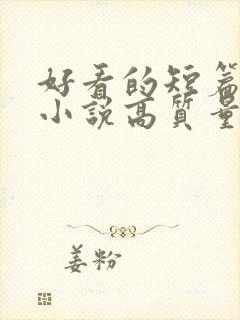 好看的短篇
小说高质量
姜粉